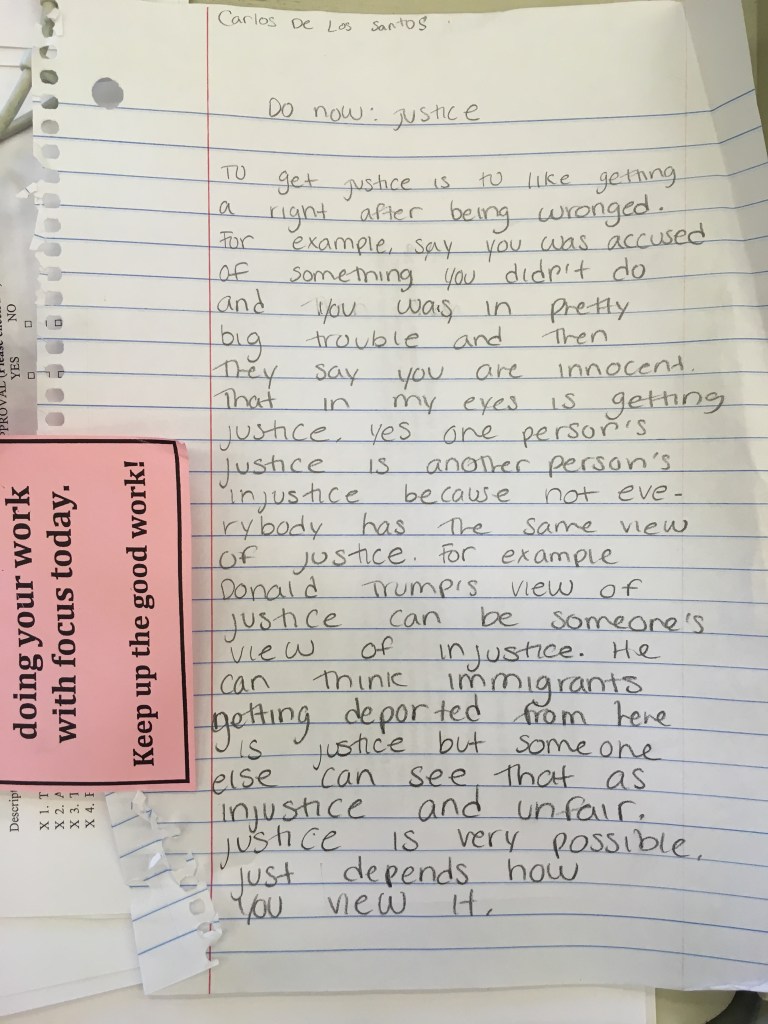 Carlos De Los Santos
Do now: justice
To get justice is to like getting
a right after being wronged.
For example, say you was accused
of something you didn't do
and you was in pretty
big trouble and then
they say you are innocent.
That in my eyes is getting
justice, yes one person's
justice is another person's
injustice because not eve-
rybody has the same view
of justice. For example
Donald Trump's view of
justice can be someone's
view of injustice. He
can think immigrants
getting deported from here
is justice but someone
else can see that as
injustice and unfair.
justice is very possible,
just depends how
you view it.
doing your work
with focus today.
Keep up the good work!
YES
NO
Descript
X 1. T
X 2. A
X 3. 1
X 4. F